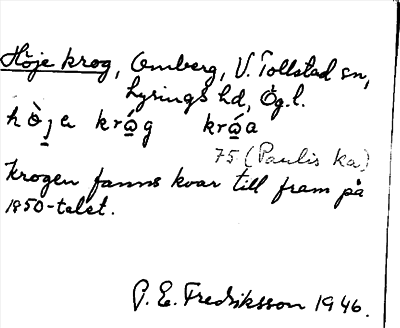 Höje krog, Omberg, V. Tollstad sn,
Lysings hd, Ög.l.
hò̱ja krǻ̱g krǻ̱a
75 (Paulis ka)
Krogen fanns kvar till fram på
1850-talet.
P. E. Fredriksson 1946.